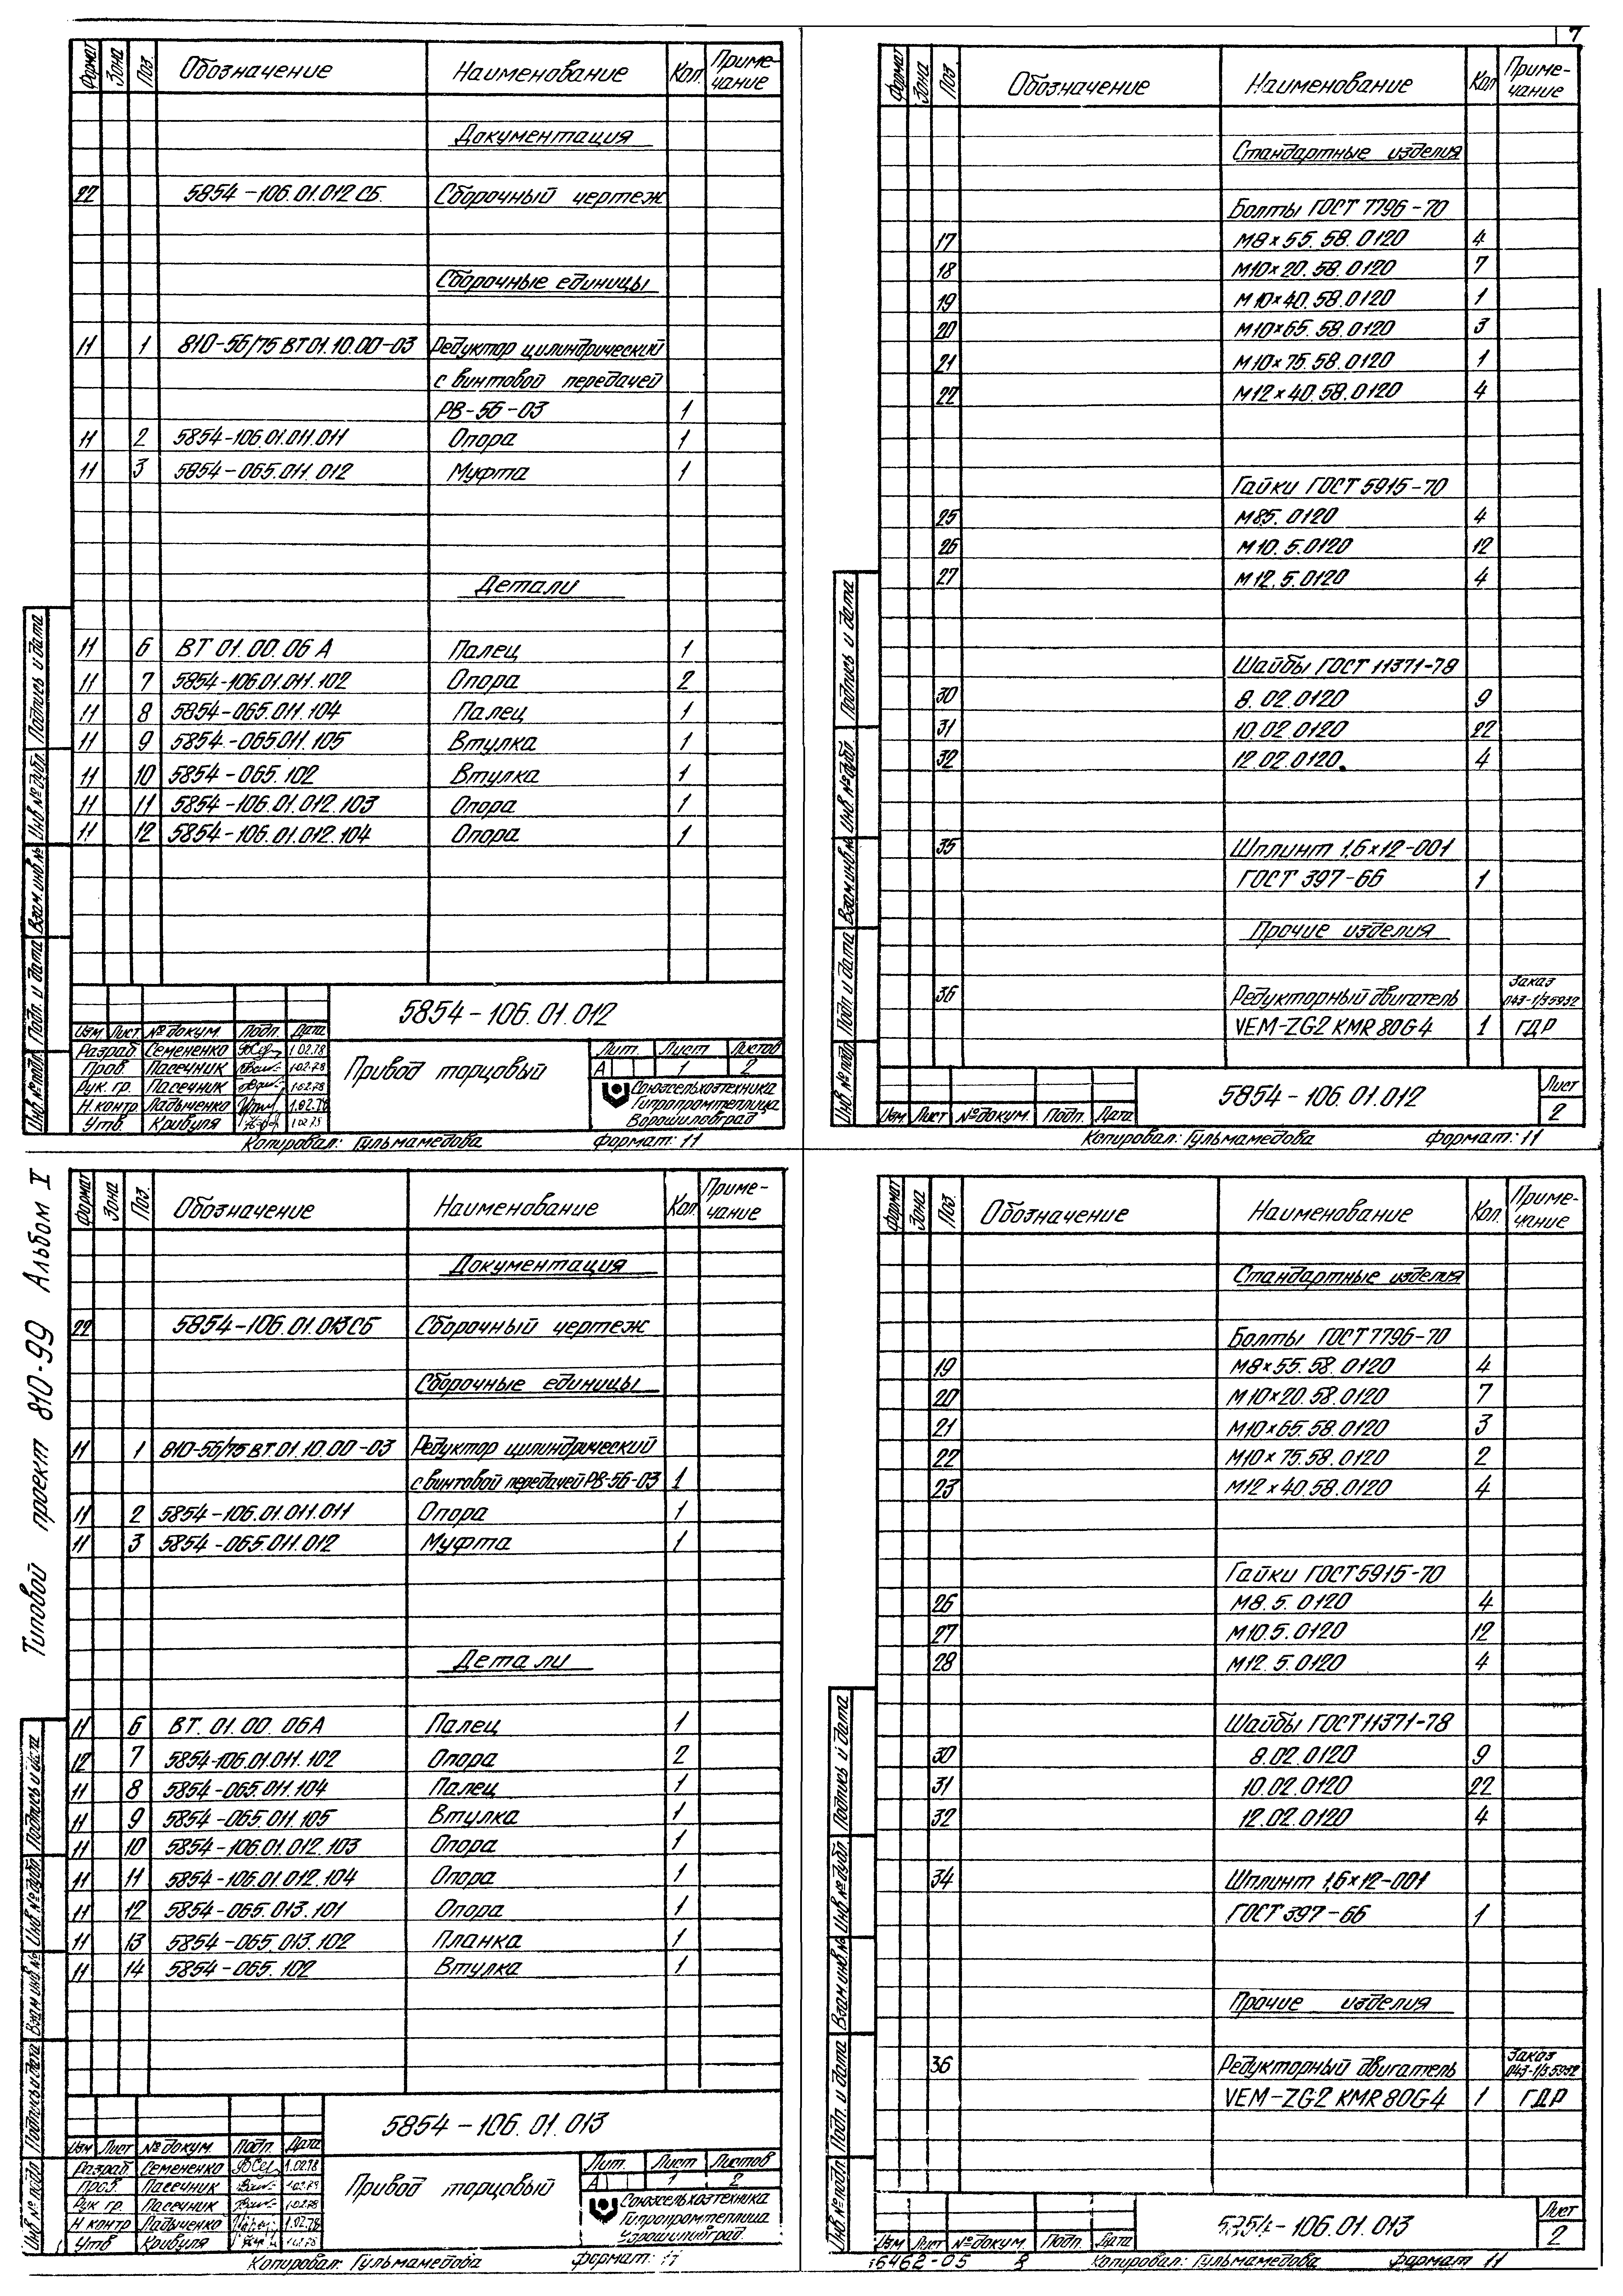 7
Формат Зона Поз. Обозначение Наименование Кол. Приме-чание
Документация
22 5854-106.01.012 СБ. Сборочный чертеж
Сборочные единицы
11 1 810-56/75 ВТ 01.10.00-03 Редуктор цилиндрический
с винтовой передачей
РВ-56-03 1
11 2 5854-106.01.011.011 Опора 1
11 3 5854-065.011.012 Муфта 1
Детали
11 6 ВТ 01.00.06 А Палец 1
11 7 5854-106.01.011.102 Опора 2
11 8 5854-065.011.104 Палец 1
11 9 5854-065011.105 Втулка 1
11 10 5854-065.102 Втулка 1
11 11 5854-106.01.012.103 Опора 1
11 12 5854-106.01.012.104 Опора 1
5854-106.01.012
Изм Лист № докум Подп Дата
Разраб Семененко 1.02.78
Пров. Пасечник 1.02.78
Рук. гр. Пасечник 1.02.78
Н.контр Ладыченко 1.02.78
Утв Кривуля
Привод торцовый
Лит. Лист Листов
А 1 2
Союзсельхозтехника
Гипропромтеплица
Ворошиловград
Копировал: Гульмамедова формат: 11
Инв № подл. Подп. и дата Взам.инв № Инв № дубл. Подпись и дата
Формат Зона Поз. Обозначение Наименование Кол Приме-чание
Стандартные изделия
Болты ГОСТ 7796-70
17 М8×55.58.0120 4
18 М10×20.58.0120 7
19 М10×40.58.0120 1
20 М10×65.58.0120 3
21 М10×75.58.0120 1
22 М12×40.58.0120 4
Гайки ГОСТ 5915-70
25 М85.0120 4
26 М10.5.0120 12
27 М12.5.0120 4
Шайбы ГОСТ 11371-78
30 8.02.0120 9
31 10.02.0120 22
32 12.02.0120 4
35 Шплинт 1,6×12-001
ГОСТ 397-66 1
Прочие изделия
36 Редукторный двигатель Заказ
VEM-ZG2 KMR 80G4 1 ГДР
5854-106.01.012 Лист 2
Изм Лист № докум. Подп. Дата
Копировал: Гульмамедова формат: 11
Инв № подл Подп. и дата Взам.инв № Инв № дубл. Подпись и дата
Типовой проект 810-99 Альбом V
Формат Зона Поз. Обозначение Наименование Кол. Приме-чание
Документация
22 5854-106.01.013СБ Сборочный чертеж
Сборочные единицы
11 1 810-56/75 ВТ.01.10.00-03 Редуктор цилиндрический
с винтовой передачей РВ-56-03 1
11 2 5854-106.01.011.011 Опора 1
11 3 5854-065.011.012 Муфта 1
Детали
11 6 ВТ.01.00.06А Палец 1
12 7 5854-106.01.011.102 Опора 2
11 8 5854-065.011.104 Палец 1
11 9 5854-065.011.105 Втулка 1
11 10 5854-106.01.012.103 Опора 1
11 11 5854-106.01.012.104 Опора 1
11 12 5854-065.013.101 Опора 1
11 13 5854-065.013.102 Планка 1
11 14 5854-065.102 Втулка 1
5854-106.01.013
Изм Лист № докум. Подп. Дата
Разраб Семененко 1.02.78
Пров. Пасечник
Рук гр. Пасечник 1.02.78
Н контр Ладыченко 1.02.78
Утв Кривуля
Привод торцовый
Лит. Лист Листов
А 1 2
Союзсельхозтехника
Гипропромтеплица
Копировал: Гульмамедова формат: 11
Инв № подл Подпись и дата Взам инв. № Инв № дубл. Подпись и дата
Формат Зона Поз. Обозначение Наименование Кол. Приме-чание
Стандартные изделия
Болты ГОСТ 7796-70
19 М8×55.58.0120 4
20 М10×20.58.0120 7
21 М10×65.58.0120 3
22 М10×75.58.0120 2
23 М12×40.58.0120 4
Гайки ГОСТ 5915-70
26 М8.5.0120 4
27 М10.5.0120 12
28 М12.5.0120 4
Шайбы ГОСТ 11371-78
30 8.02.0120 9
31 10.02.0120 22
32 12.02.0120 4
34 Шплинт 1,6×12-001
ГОСТ 397-66 1
Прочие изделия
36 Редукторный двигатель Заказ
VEM-ZG2 KMR 80G4 1 ГДР
5854-106.01.013 Лист 2
Изм Лист № докум. Подп. Дата
16462-05 8 Копировал: Гульмамедова формат 11
Инв № подл Подп и дата Взам инв. № Инв № дубл. Подпись и дата